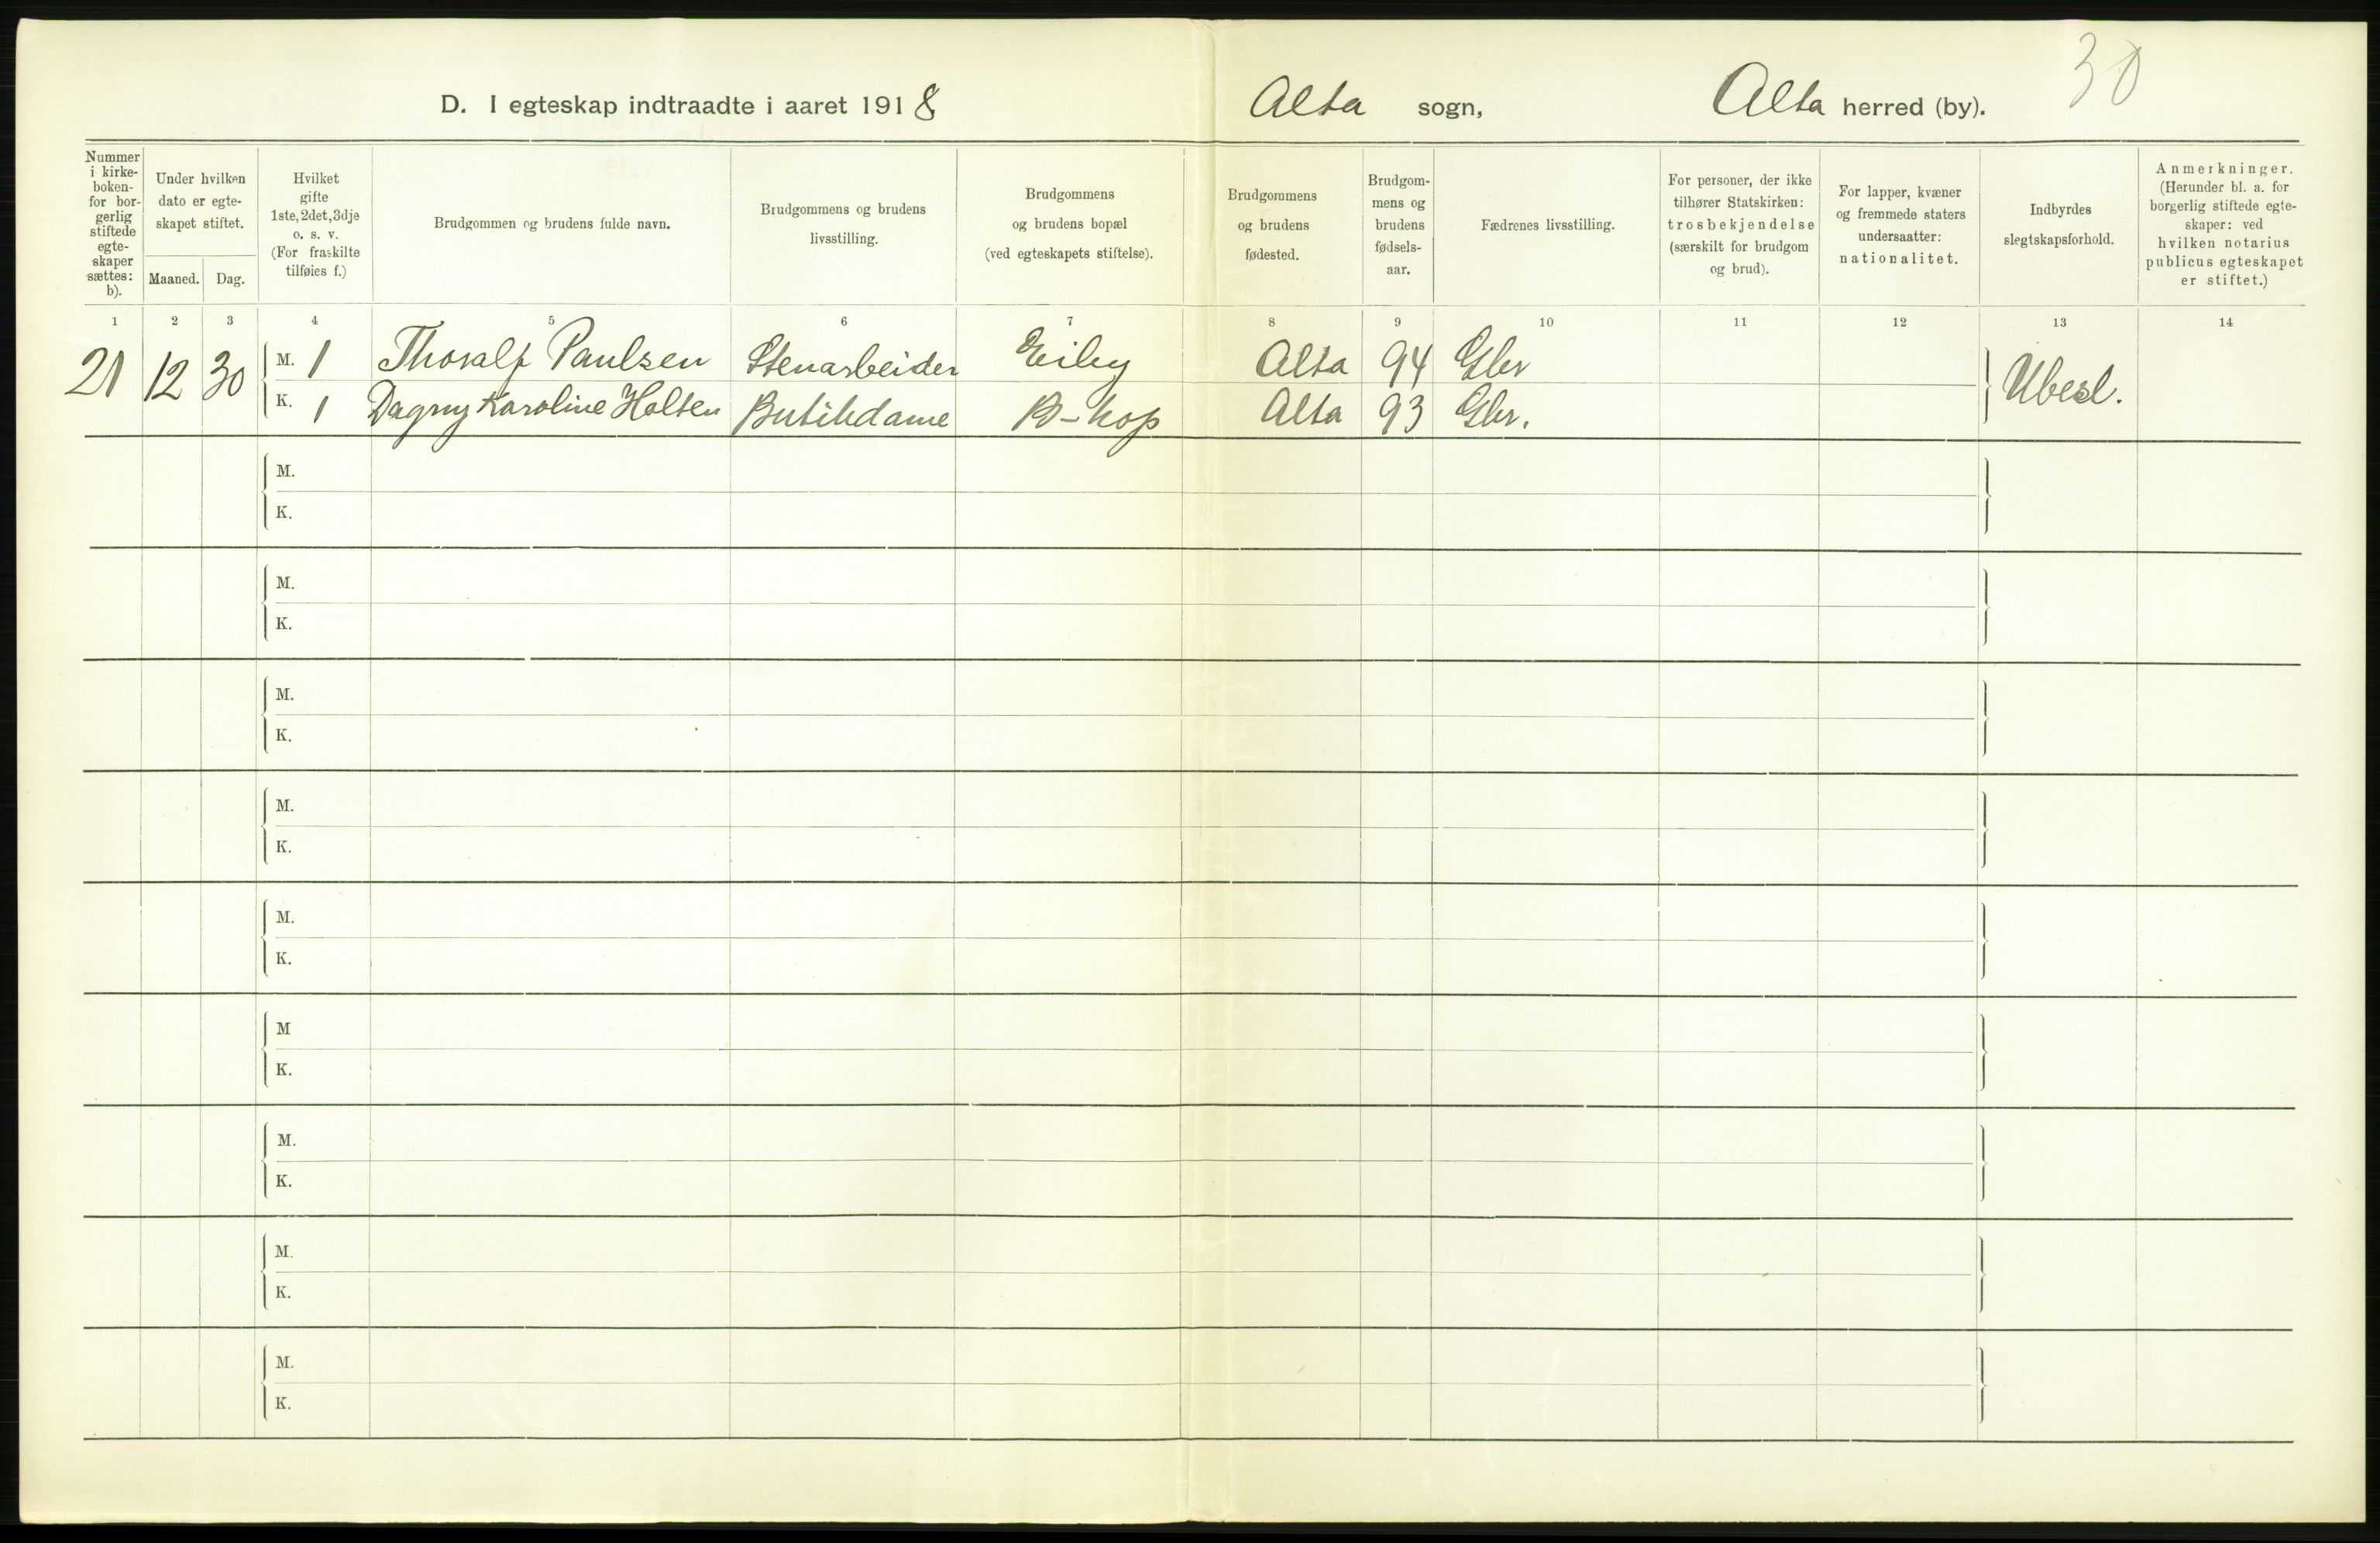 30
D. I egteskap indtraadte i aaret 1918 Alta sogn, Alta herred (by).
Nummer i kirke-boken- for bor-gerlig stiftede egte-skaper sættes: b).
Under hvilken dato er egte-skapet stiftet.
Maaned. Dag.
Hvilket gifte 1ste, 2det, 3dje o. s. v. (For fraskilte tilføies f.)
Brudgommen og brudens fulde navn.
Brudgommens og brudens livsstilling.
Brudgommens og brudens bopæl (ved egteskapets stiftelse).
Brudgommens og brudens fødested.
Brudgom-mens og brudens fødsels-aar.
Fædrenes livsstilling.
For personer, der ikke tilhører Statskirken: trosbekjendelse (særskilt for brudgom og brud).
For lapper, kvæner og fremmede staters undersaatter: nationalitet.
Indbyrdes slegtskapsforhold.
Anmerkninger. (Herunder bl. a. for borgerlig stiftede egte-skaper: ved hvilken notarius publicus egteskapet er stiftet.)
1 2 3 4 5 6 7 8 9 10 11 12 13 14
21 12 30 M. 1 Thoralf Paulsen Stenarbeider Eiby Alta 94 Gbr Ubesl.
K. 1 Dagny Karoline Holten Butikdame B-kop Alta 93 Gbr.
M.
K.
M.
K.
M.
K.
M.
K.
M.
K.
M
K.
M.
K.
M.
K.
M.
K.